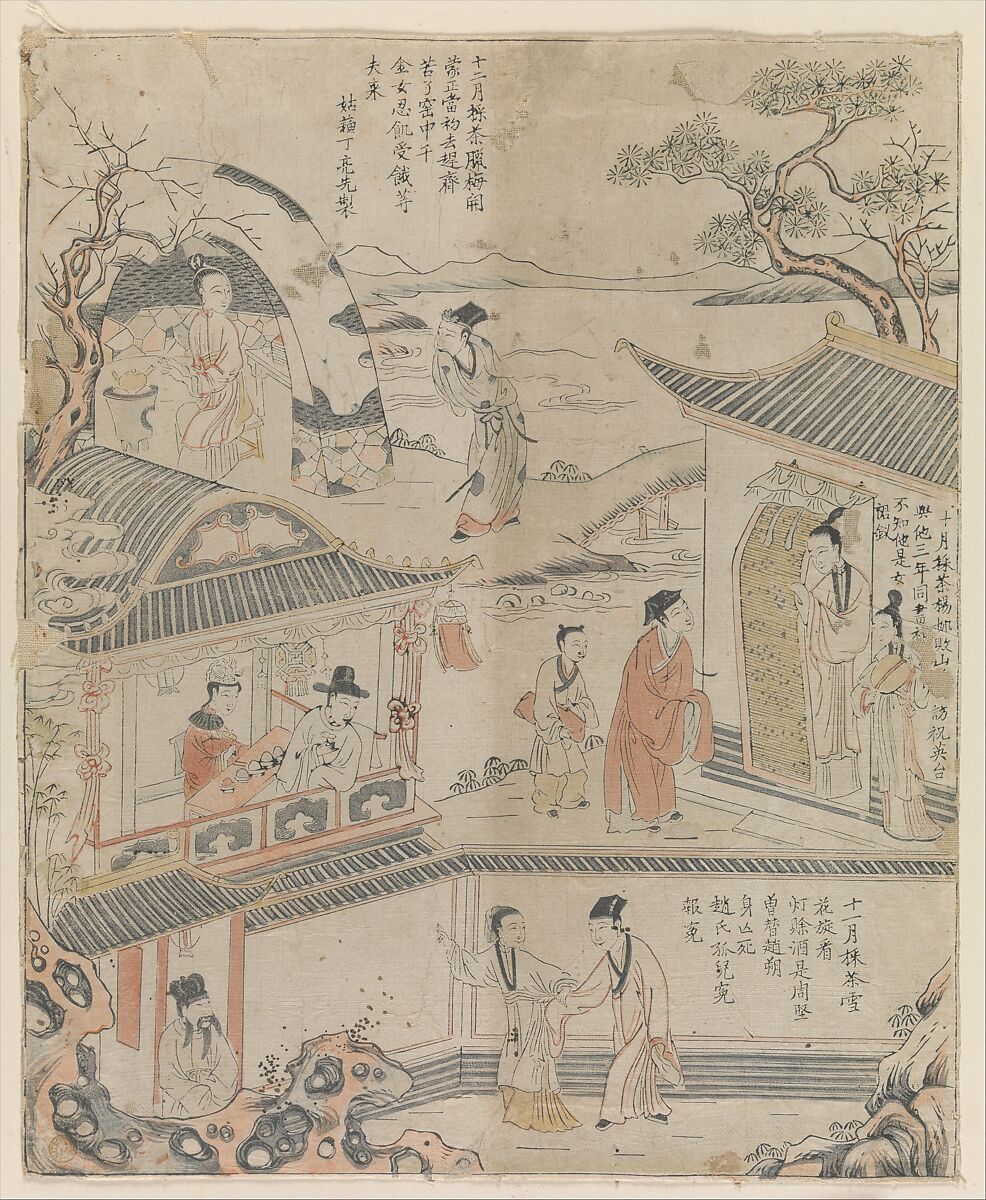 十二月採茶臘梅開
蒙正當初去趕齋
苦了窑中千
金女忍飢受餓等
夫來
姑蘓丁亮先製
十月採茶楊
山
與他三年同
不知他是女
裙釵
訪祝英台
十一月採茶雪
花旋看
灯賒酒是周堅
曽替趙朔
身亾死
趙氏孤兒寃
報寃